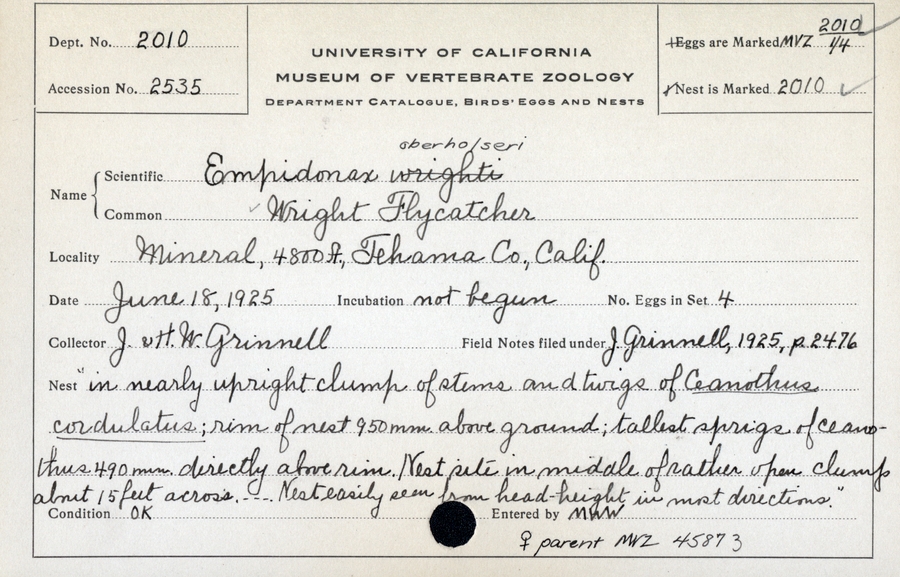 Dept. No. 2010
Accession No. 2535
UNIVERSITY OF CALIFORNIA
MUSEUM OF VERTEBRATE ZOOLOGY
DEPARTMENT CATALOGUE, BIRDS' EGGS AND NESTS
Eggs are Marked MVZ 2010 1/4
Nest is Marked 2010
oberholseri
Name Scientific Empidonax wrighti
Common Wright Flycatcher
Locality Mineral, 4800 ft., Tehama Co., Calif.
Date June 18, 1925 Incubation not begun No. Eggs in Set 4
Collector J. & H. W. Grinnell Field Notes filed under J. Grinnell, 1925, p. 2476
Nest "in nearly upright clump of stems and twigs of Ceanothus
cordulatus; rim of nest 950 mm. above ground; tallest sprigs of ceano-
thus 490 mm. directly above rim. Nest site in middle of rather open clump
about 15 feet across. ---- Nest easily seen from head-height in most directions."
Condition OK Entered by MWW
♀ parent MVZ 45873